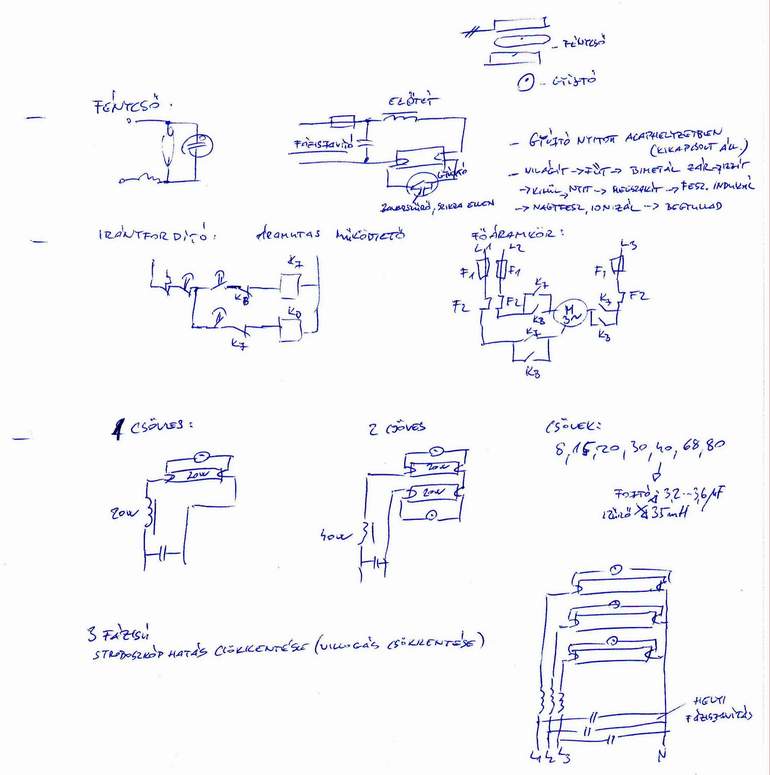 FÉNYCSŐ
GYÚJTÓ
FÉNYCSŐ.
ELŐTÉT
FÁZISJAVÍTÓ
GYÚJTÓ
ZAVARSZŰRŐ, SZIKRA ELLEN
- GYÚJTÓ NYITOTT ALAPHELYZETBEN
(KIKAPCSOLT ÁLL.)
- VILÁGÍT → FŰT → BIMETÁL ZÁR → IZZÍT
→ KIHŰL → NYIT → MEGSZAKÍT → FESZ. INDUKÁL
→ NAGYFESZ, IONIZÁL → BEGYULLAD
IRÁNYFORDÍTÓ: ÁRAMUTAS MŰKÖDTETŐ
K7
K8
K8
K7
FŐÁRAMKÖR:
L1 L2 L3
F1 F1 F1
F2 F2 K7 K8 M 3~ K7 K8 F2
K7
K8
1 CSÖVES:
20W
20W
2 CSÖVES
20W
20W
40W
CSÖVEK:
8, 15, 20, 30, 40, 68, 80
FOJTÓ 3,2...3,6µF
SZŰRŐ 35mH
3 FÁZISÚ
STROBOSZKÓP HATÁS CSÖKKENTÉSE (VILLOGÁS CSÖKKENTÉSE)
HELYI
FÁZISJAVÍTÁS
L1 L2 L3 N